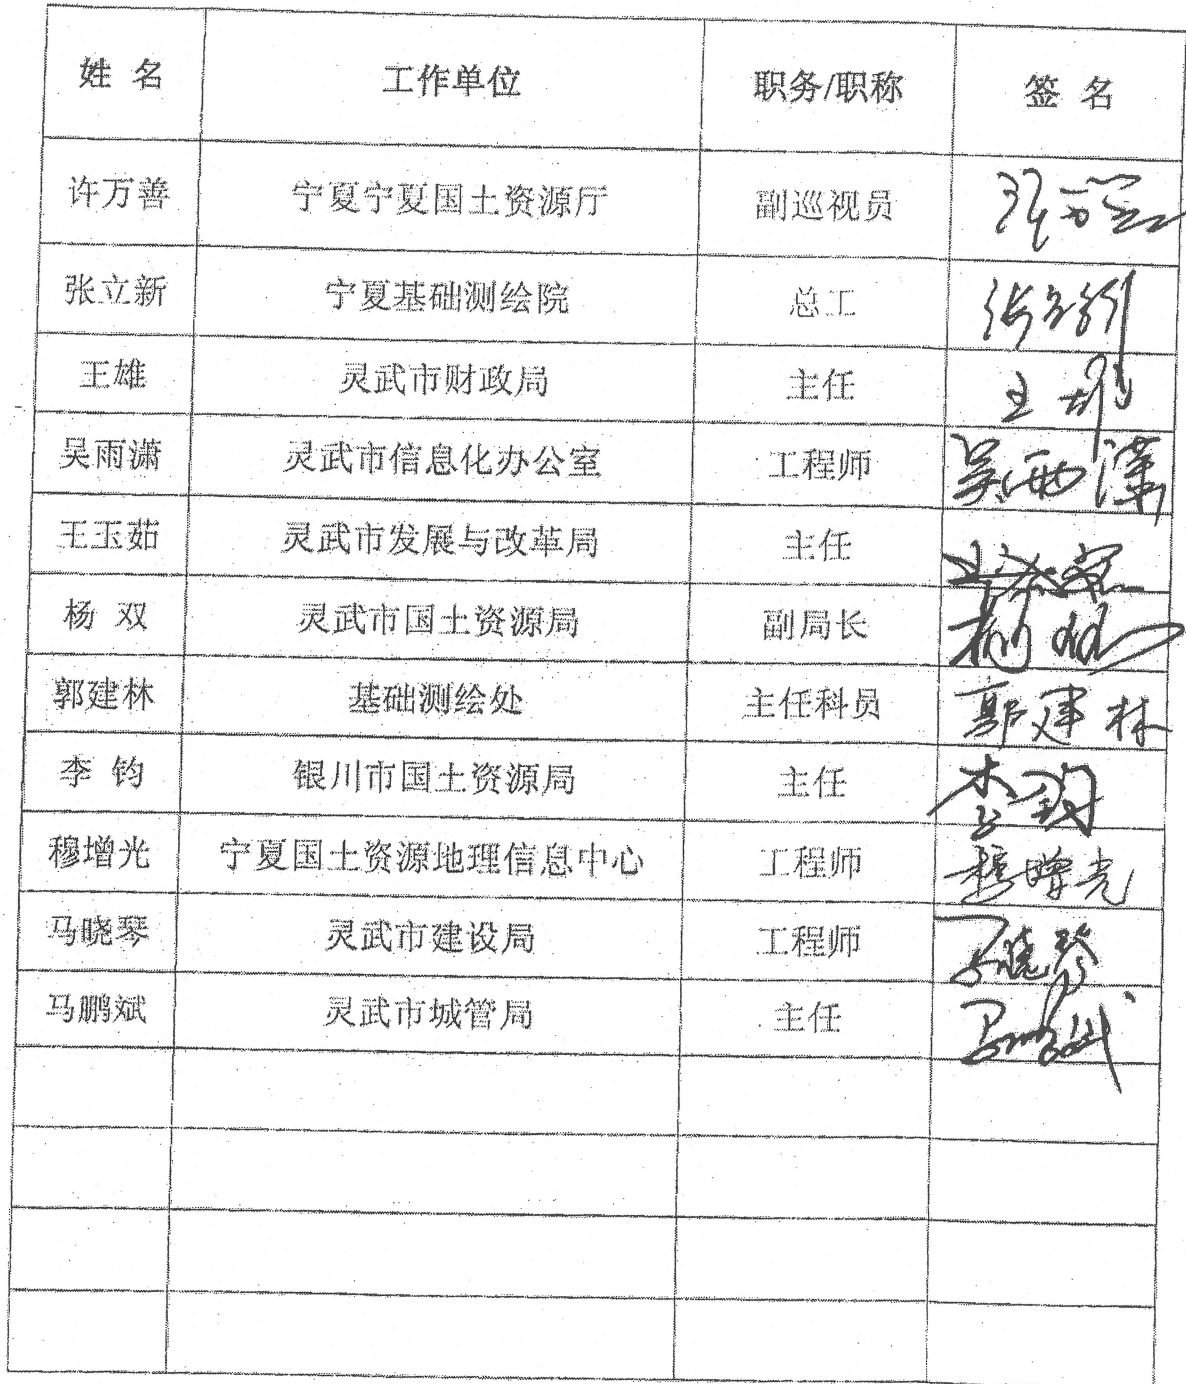 姓 名 工作单位 职务/职称 签 名
许万善 宁夏宁夏国土资源厅 副巡视员 许万善
张立新 宁夏基础测绘院 总工 张立新
王雄 灵武市财政局 主任 王雄
吴雨潇 灵武市信息化办公室 工程师 吴雨潇
王玉茹 灵武市发展与改革局 主任
杨 双 灵武市国土资源局 副局长 杨双
郭建林 基础测绘处 主任科员 郭建林
李 钧 银川市国土资源局 主任 李钧
穆增光 宁夏国土资源地理信息中心 工程师 穆增光
马晓琴 灵武市建设局 工程师 马晓琴
马鹏斌 灵武市城管局 主任 马鹏斌